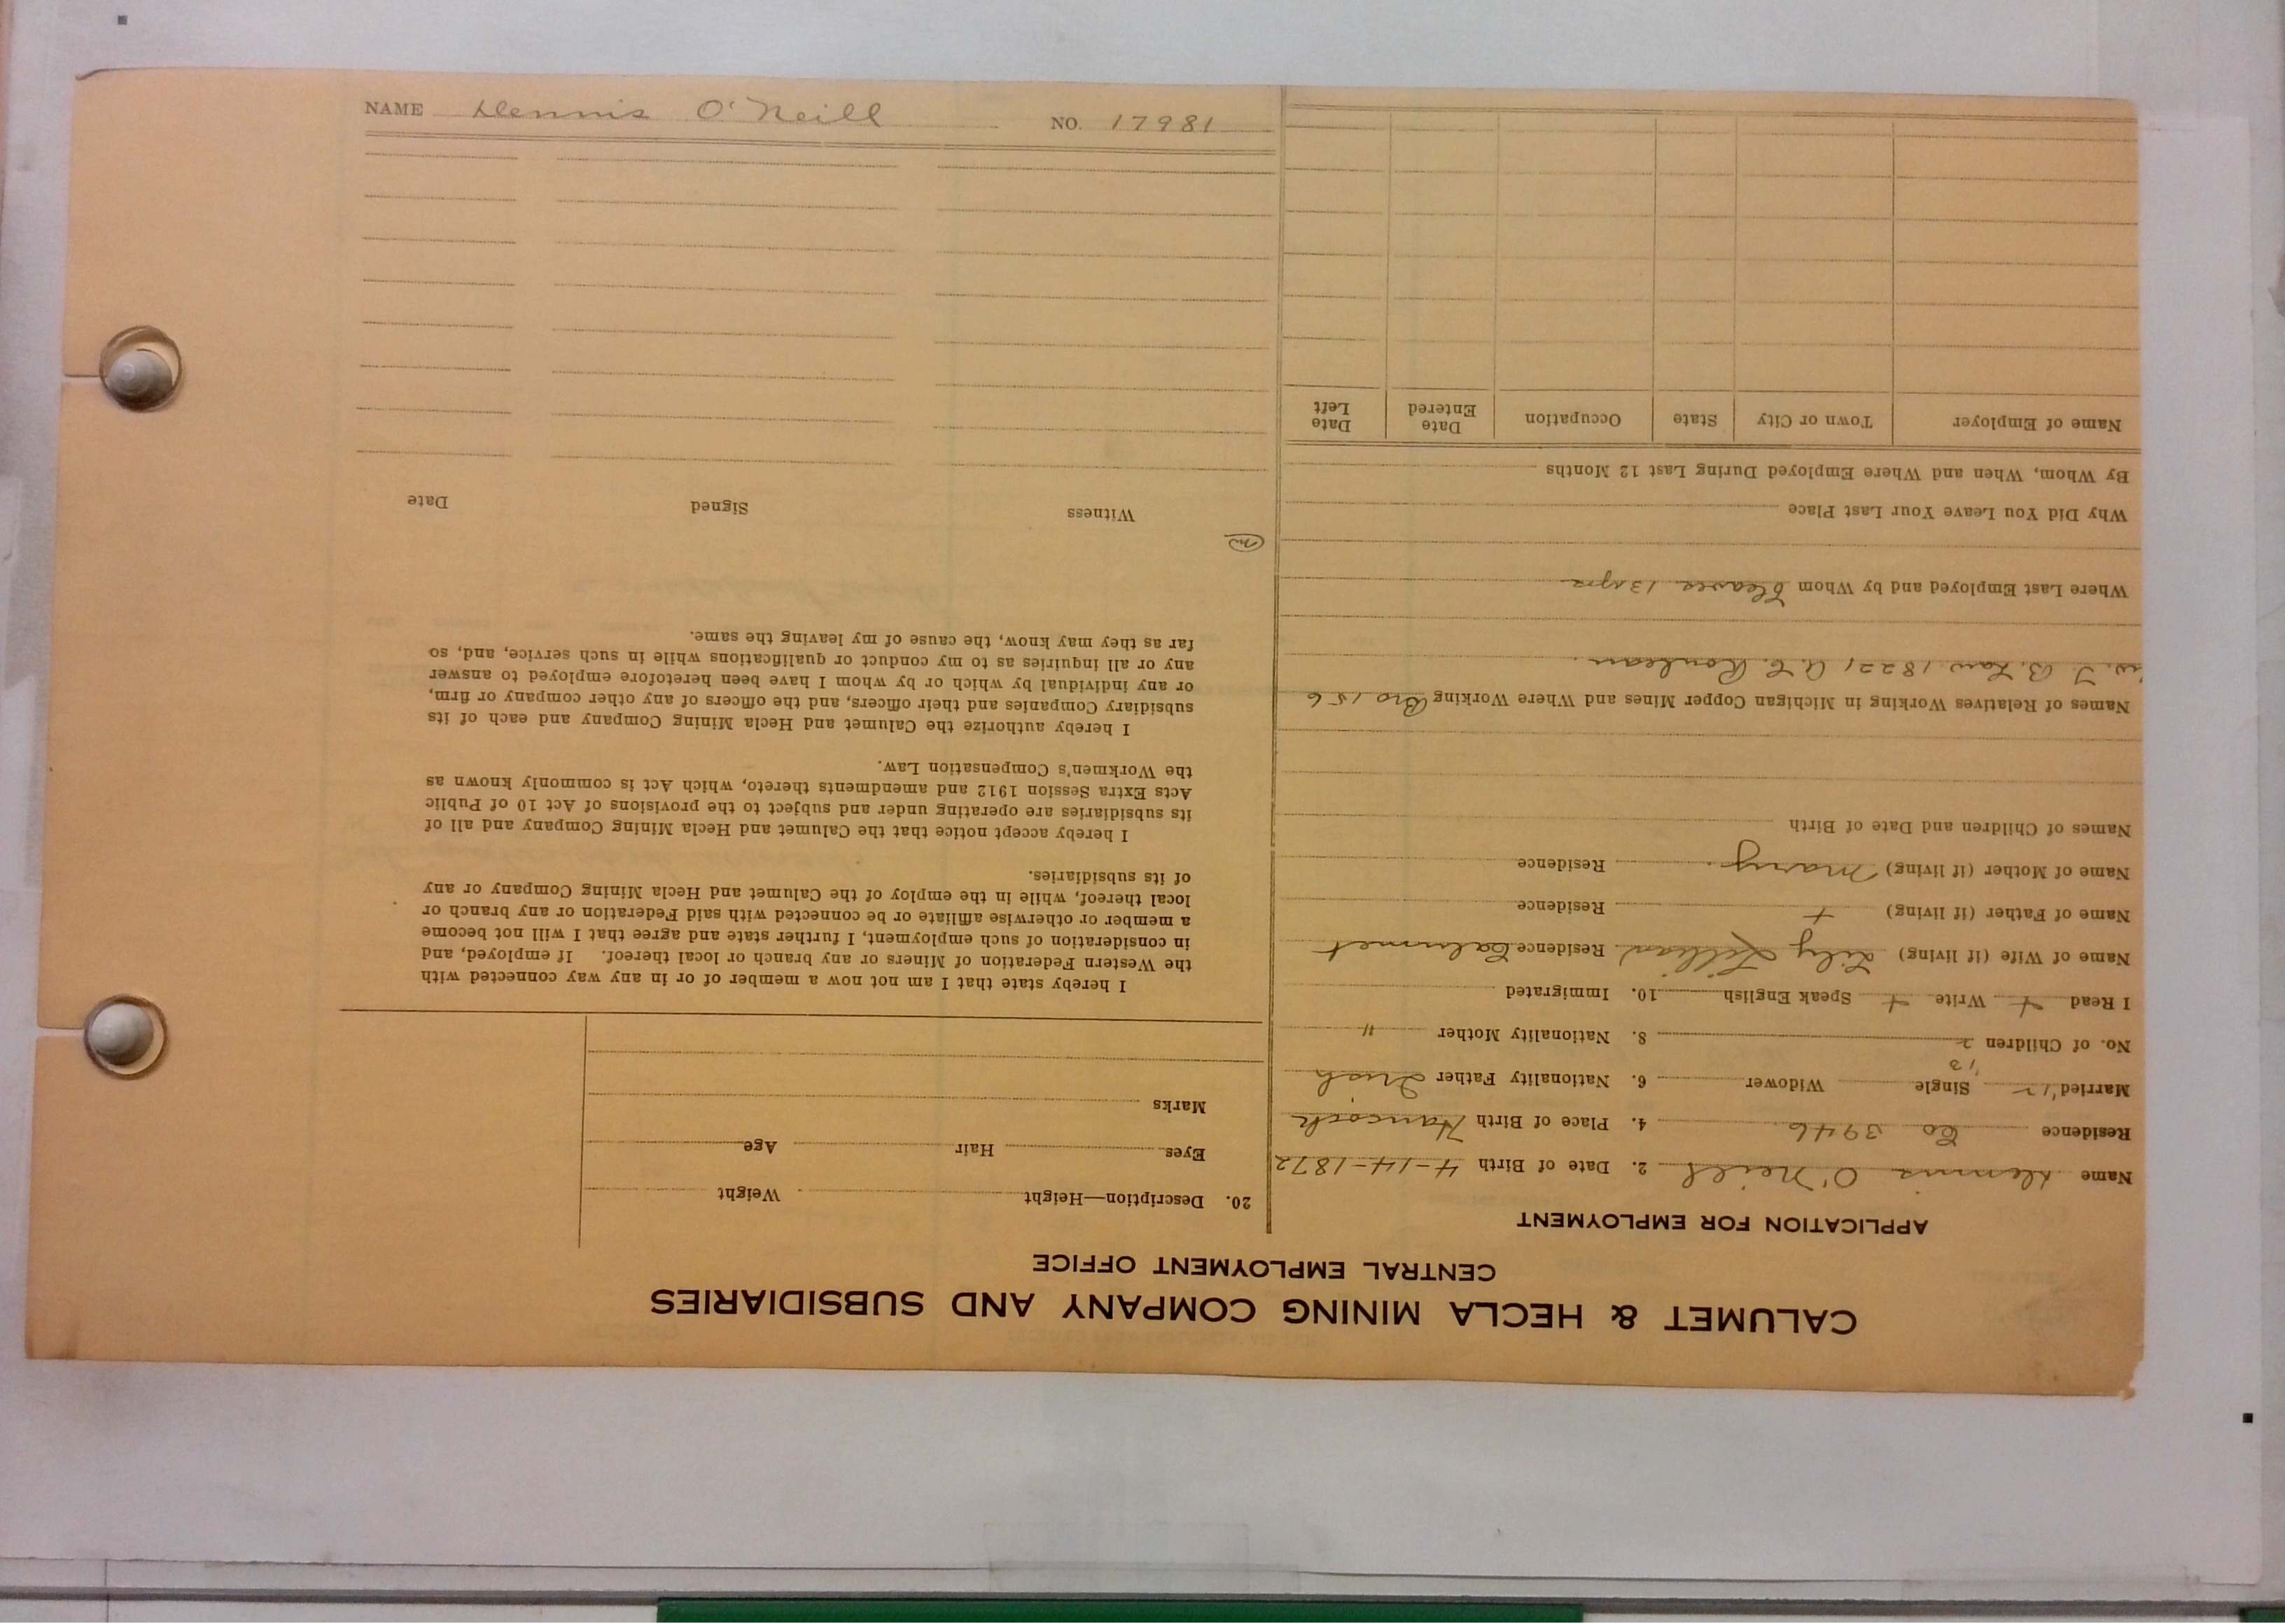 CALUMET & HECLA MINING COMPANY AND SUBSIDIARIES
CENTRAL EMPLOYMENT OFFICE
APPLICATION FOR EMPLOYMENT
Name Dennis O'Neill 2. Date of Birth 4-14-1872
Residence Co 3946 4. Place of Birth Hancock
Married Single Widower 6. Nationality Father Irish
No. of Children 2 8. Nationality Mother "
I Read + Write + Speak English 10. Immigrated
Name of Wife (if living) Lily Lillian Residence Calumet
Name of Father (if living) + Residence
Name of Mother (if living) Mary Residence
Names of Children and Date of Birth
Names of Relatives Working in Michigan Copper Mines and Where Working Bro 156
B. Law 1822,
Where Last Employed and by Whom 13 yrs
Why Did You Leave Your Last Place
By Whom, When and Where Employed During Last 12 Months
Name of Employer Town or City State Occupation Date Entered Date Left
20. Description—Height Weight
Eyes Hair Age
Marks
I hereby state that I am not now a member of or in any way connected with
the Western Federation of Miners or any branch or local thereof. If employed, and
in consideration of such employment, I further state and agree that I will not become
a member or otherwise affiliate or be connected with said Federation or any branch or
local thereof, while in the employ of the Calumet and Hecla Mining Company or any
of its subsidiaries.
I hereby accept notice that the Calumet and Hecla Mining Company and all of
its subsidiaries are operating under and subject to the provisions of Act 10 of Public
Acts Extra Session 1912 and amendments thereto, which Act is commonly known as
the Workmen's Compensation Law.
I hereby authorize the Calumet and Hecla Mining Company and each of its
subsidiary Companies and their officers, and the officers of any other company or firm,
or any individual by which or by whom I have been heretofore employed to answer
any or all inquiries as to my conduct or qualifications while in such service, and, so
far as they may know, the cause of my leaving the same.
Witness Signed Date
NAME Dennis O'Neill NO. 17981